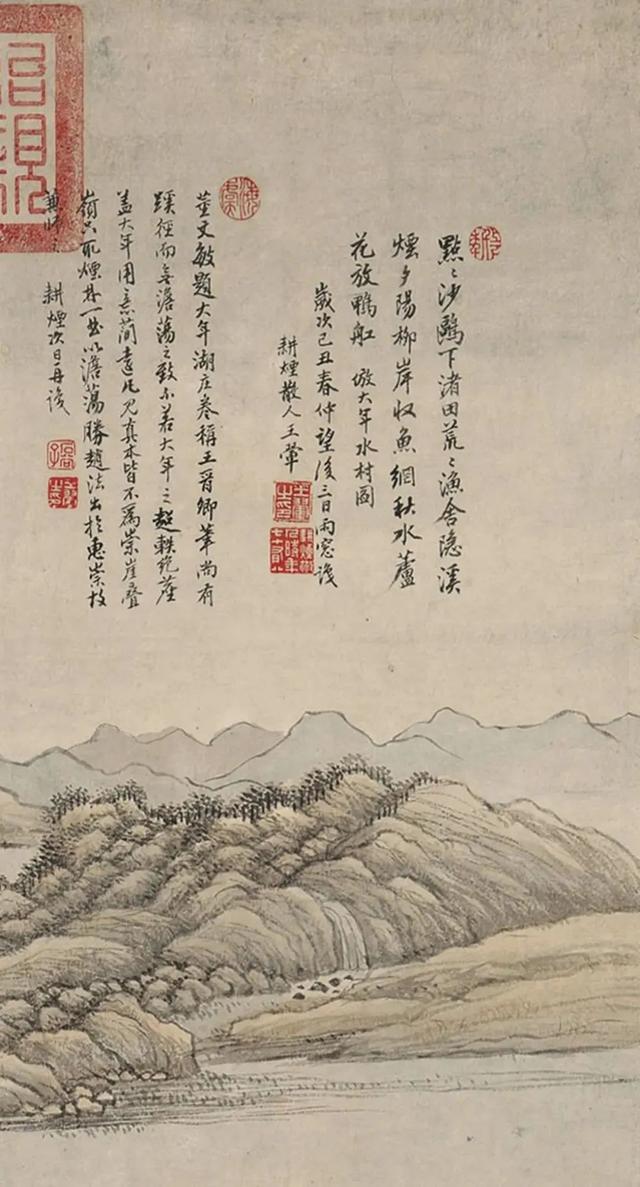 點〻沙鷗下渚田荒〻漁舍隐溪
煙夕陽柳岸収魚網秋水蘆
花放鴨舡 倣大年水村圖
歲次己丑春仲望後三日雨窓識
耕煙散人王翬
王翬之印
董文敏題大年湖庄卷稱王晋卿筆尚有
蹊徑而無澹蕩之致不若大年之超軼絶塵
盖大年用意簡遠凡見真本皆不爲崇崖疊
嶺只取煙林一 以澹蕩勝趙法出於惠崇故
兼師之 耕煙次日再識